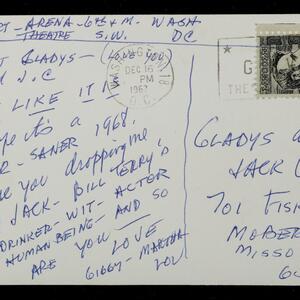 ARENA - 6th & M - WASH
THEATRE S.W. DC
GLADYS - LOVE YOU
N.C
LIKE IT IN
it's a 1968.
SANER
you dropping me
JACK - BILL TERRY'S
DRINKER - WIT - ACTOR
HUMAN BEING - AND SO
ARE YOU - LOVE
GIGGY - MARTHA
TOO!
WASHINGTON
DEC 16
PM
1967
D.C.
18
GLADYS
JACK
701 FISK
MOBERLY
MISSO